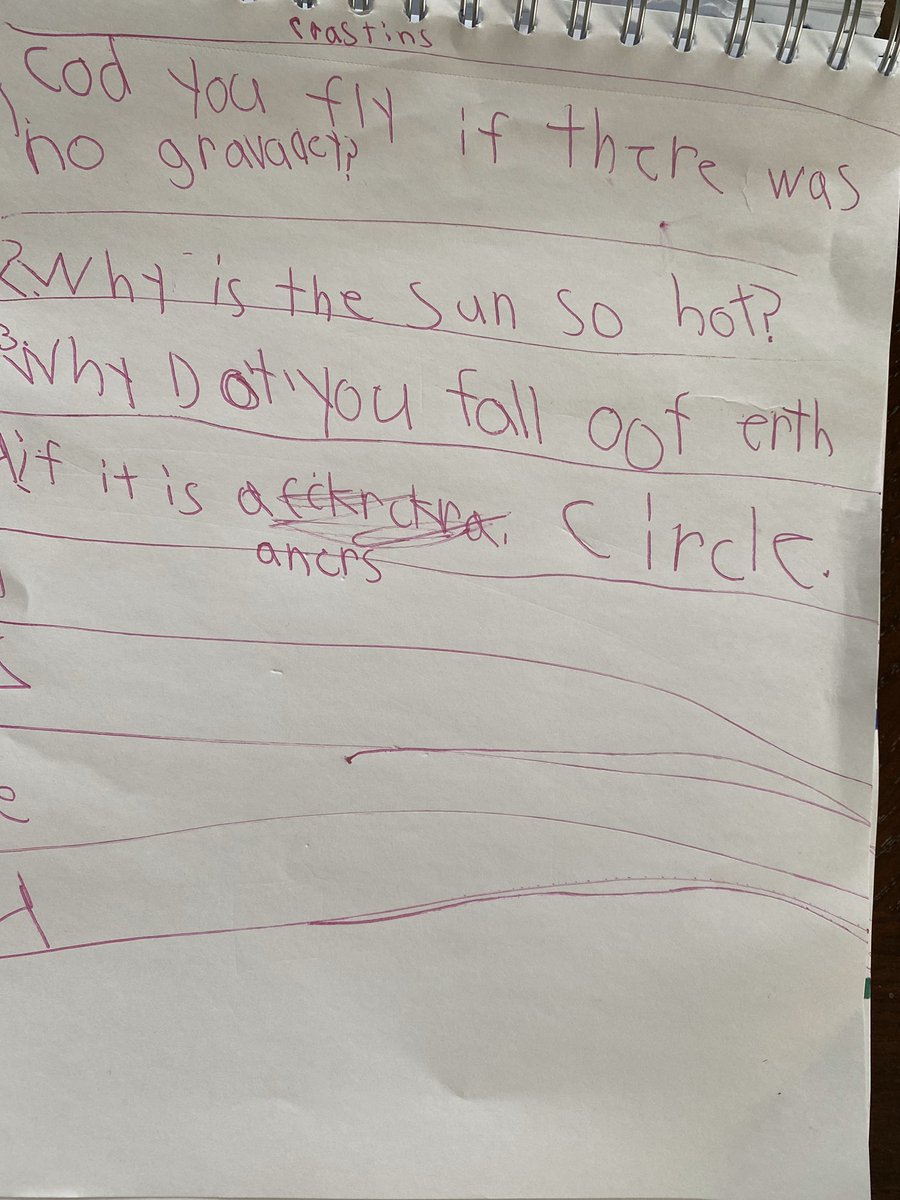 crastins
cod you fly if there was
no gravadey?
2. Why is the sun so hot?
3. Why Dot you fall oof erth
if it is a circle.
ancrs